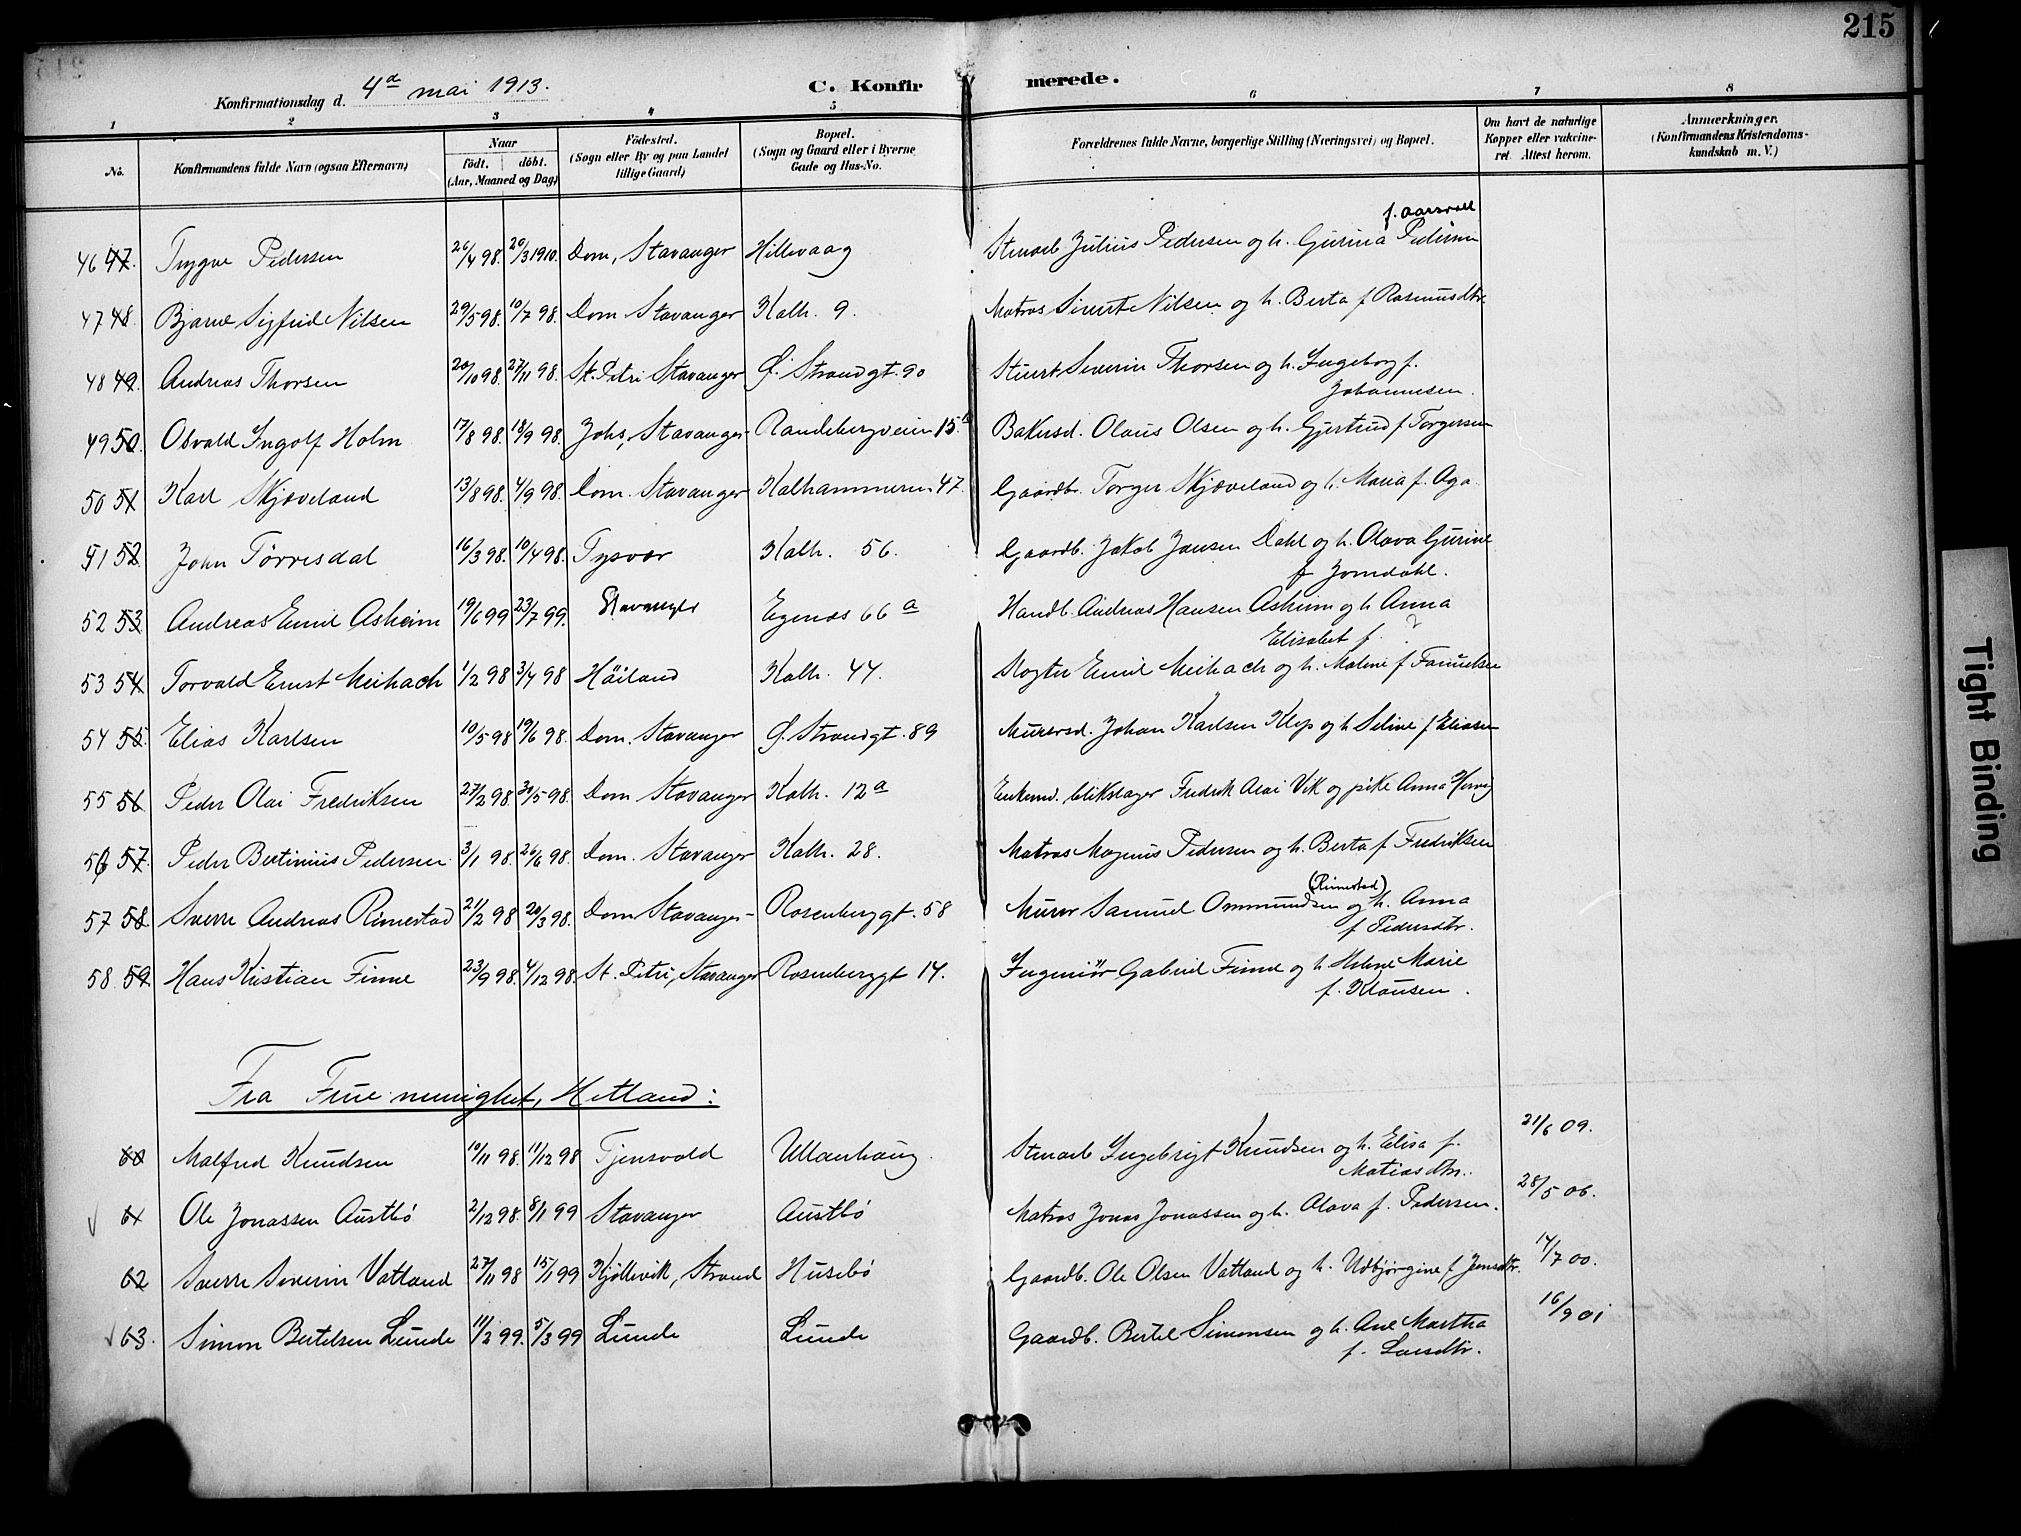 215
Konfirmationsdag d. 4de mai 1913. C. Konfirmerede.
1 2 3 4 5 6 7 8
No. Konfirmandens fulde Navn (ogsaa Efternavn) Naar födt. döbt. (Aar, Maaned og Dag) Födested. (Sogn eller By og paa Landet tillige Gaard) Bopæl. (Sogn og Gaard eller i Byerne Gade og Hus-No. Forældrenes fulde Navne, borgerlige Stilling (Næringsvei) og Bopæl. Om havt de naturlige Kopper eller vakcineret. Attest herom. Anmærkninger. (Konfirmandens Kristendomskundskab m. V.)
f. Aarsvoll
46 47. Trygve Pedersen 26/4 98. 20/3 1910. Dom, Stavanger Hillevaag Stenarb. Julius Pedersen og h. Gurina Pedersen
47 48. Bjarne Sigfrid Nilsen 29/5 98. 10/7 98. Dom. Stavanger Kalh. 9. Matros Sivert Nilsen og h. Berta f Rasmusdtr.
48 49. Andreas Thorsen 20/10 98. 27/11 98. St. Petri Stavanger Ø. Strandgt. 90 Stuert Severin Thorsen og h. Ingeborg f.
Johannesen.
49 50. Osvald Ingolf Holm 17/8 98. 18/9 98. Johs, Stavanger Randebergveien 15. Bakersd. Olaus Olsen og h. Gjertrud f Torgersen
50 51 Karl Skjæveland 13/8 98. 4/9 98. Dom. Stavanger Kalhammeren 47. Gaardbr. Torger Skjæveland og h. Maria f. Aga.
51 52. John Tørresdal 16/3 98. 10/4 98. Tysvær Kalh. 56. Gaardb. Jakob Jansen Dahl og h. Olava Gurine
f Jomdahl.
52 53. Andreas Emil Asheim 19/6 99 23/7 99. Stavanger Egenæs 66 a Handb. Andreas Hansen Asheim og h Anna
Elisabet f. ?
53 54 Torvald Ernst Meihach 1/2 98 3/4 98 Höiland Kalh. 44. Røgter Emil Meihach og h. Maline f
54 55. Elias Karlsen 10/5 98 19/6 98. Dom. Stavanger Ø. Strandgt. 89 Murersd. Johan Karlsen Klep og h Seline f Eliasen
55 56 Peder Olai Fredriksen 27/2 98. 30/5 98. Dom Stavanger Kalh. 12 a Enkemd. blikslager Fredrik Olai Vik og pike Anna
56 57. Peder Bertinius Pedersen 3/1 98. 26/6 98. Dom. Stavanger Kalh. 28. Matros Magnus Pedersen og h. Berta f Fredriksen
57 58. Sverre Andreas Rimestad 21/2 98 20/3 98. Dom Stavanger Rosenberggt. 58 Murer Samuel Ommundsen (Rimestad) og h. Anna
f Pedersdtr.
58 59. Hans Kristian Finne 23/9 98. 4/12 98. St. Petri, Stavanger Rosenbergg 14. Ingeniör Gabriel Finne og h Helene Marie
f. Klausen.
Fra Frue menighet, Hetland:
60 Malfred Knudsen 19/11 98. 11/12 98 Tjensvold Ullanhaug. Stenarb Ingebrigt Knudsen og h. Elisa f.
Matiasdtr. 21/6 09.
61 Ole Jonassen Austbö 2/12 98. 8/1 99 Stavanger Austbö Matros Jonas Jonassen og h. Olava f. Pedersen. 28/5 06.
62 Sverre Severin Vatland 27/11 98 15/1 99 Kjöllevik, Strand Husebö Gaardb. Ole Olsen Vatland og h. Udbjørgine f Jensdtr. 17/7 00.
63. Simon Bertelsen Lunde 11/2 99. 5/3 99 Lunde Lunde Gaardb. Bertel Simonsen og h. Ane Martha
f. Larsdtr. 16/9 01
Tight Binding